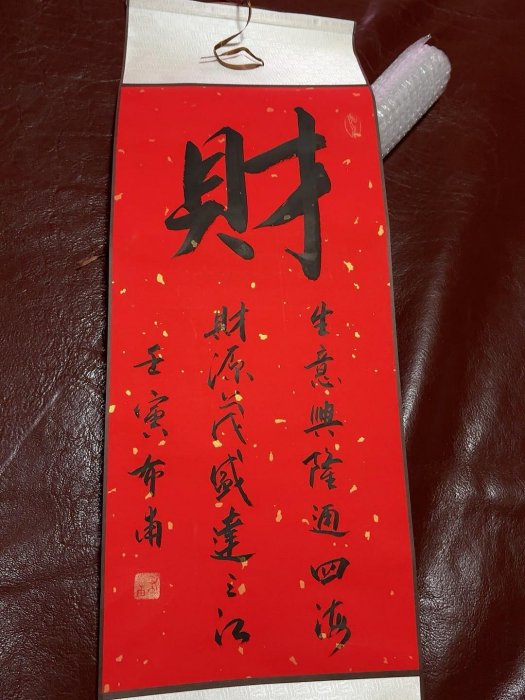 財
生意興隆通四海
財源茂盛達三江
壬寅布甫